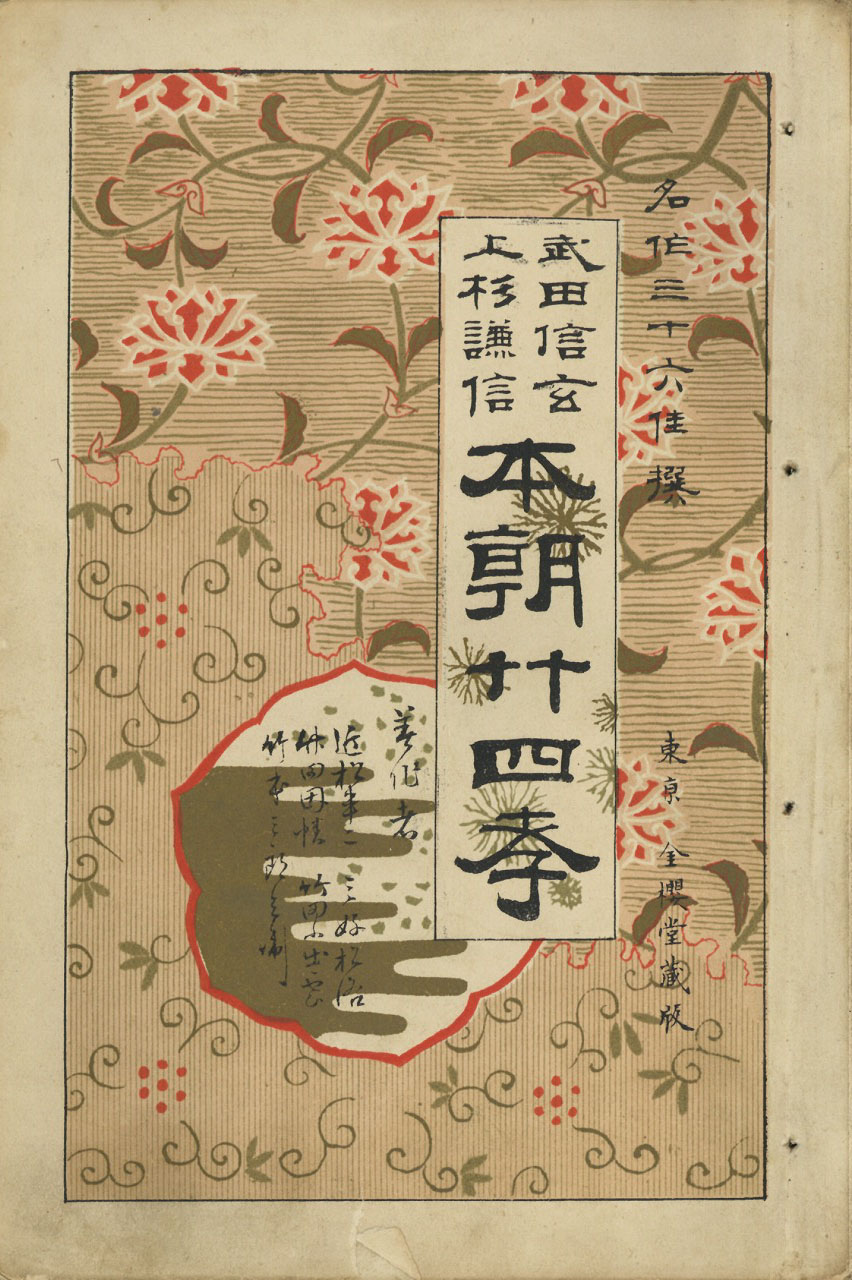 名作三十六佳撰
東京 金櫻堂藏版
武田信玄
上杉謙信
本朝廿四孝
著作者
近松半二 三好松洛
竹田因幡 竹田小出雲
竹本三郎兵衛